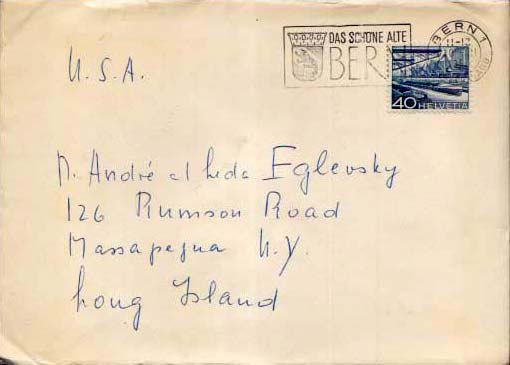 DAS SCHÖNE ALTE
BERN
BERN 1
11-12
40 HELVETIA
U.S.A.
M. André et Leda Eglevsky
126 Rumson Road
Massapequa N.Y.
Long Island